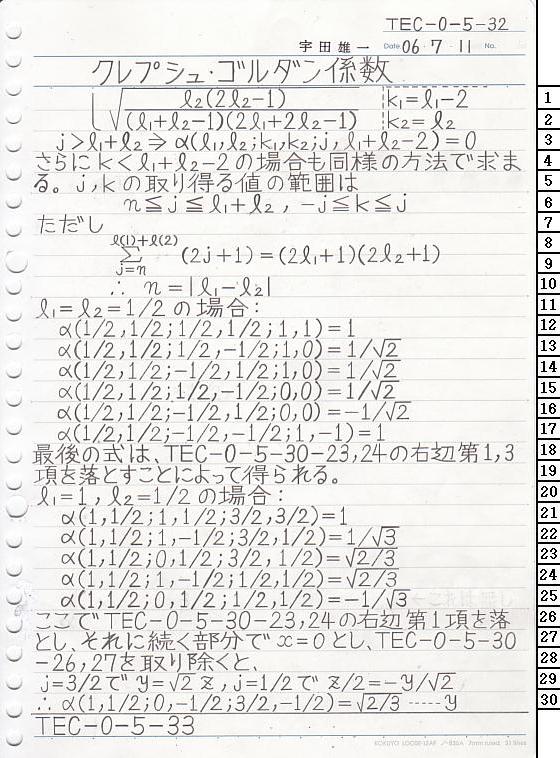 TEC-0-5-32
宇田雄一 Date 06・7・11 No.
クレプシュ・ゴルダン係数
√ℓ₂(2ℓ₂-1) / (ℓ₁+ℓ₂-1)(2ℓ₁+2ℓ₂-1) k₁=ℓ₁-2
k₂=ℓ₂
j>ℓ₁+ℓ₂⇒α(ℓ₁,ℓ₂;k₁,k₂;j,ℓ₁+ℓ₂-2)=0
さらにk<ℓ₁+ℓ₂-2の場合も同様の方法で求ま
る。j,kの取り得る値の範囲は
n≦j≦ℓ₁+ℓ₂, -j≦k≦j
ただし
ℓ(1)+ℓ(2)
Σ (2j+1)=(2ℓ₁+1)(2ℓ₂+1)
j=n
∴ n=|ℓ₁-ℓ₂|
ℓ₁=ℓ₂=1/2の場合:
α(1/2,1/2;1/2,1/2;1,1)=1
α(1/2,1/2;1/2,-1/2;1,0)=1/√2
α(1/2,1/2;-1/2,1/2;1,0)=1/√2
α(1/2,1/2;1/2,-1/2;0,0)=1/√2
α(1/2,1/2;-1/2,1/2;0,0)=-1/√2
α(1/2,1/2;-1/2,-1/2;1,-1)=1
最後の式は、TEC-0-5-30-23,24の右辺第1,3
項を落とすことによって得られる。
ℓ₁=1,ℓ₂=1/2の場合:
α(1,1/2;1,1/2;3/2,3/2)=1
α(1,1/2;1,-1/2;3/2,1/2)=1/√3
α(1,1/2;0,1/2;3/2,1/2)=√2/3
α(1,1/2;1,-1/2;1/2,1/2)=√2/3
α(1,1/2;0,1/2;1/2,1/2)=-1/√3
ここでTEC-0-5-30-23,24の右辺第1項を落
とし、それに続く部分でx=0とし、TEC-0-5-30
-26,27を取り除くと、
j=3/2でy=√2 z,j=1/2でz/2=-y/√2
∴α(1,1/2;0,-1/2;3/2,-1/2)=√2/3 -----y
TEC-0-5-33
KOKUYO LOOSE-LEAF ノ-836A 7mm ruled. 31 lines
1
2
3
4
5
6
7
8
9
10
11
12
13
14
15
16
17
18
19
20
21
22
23
24
25
26
27
28
29
30